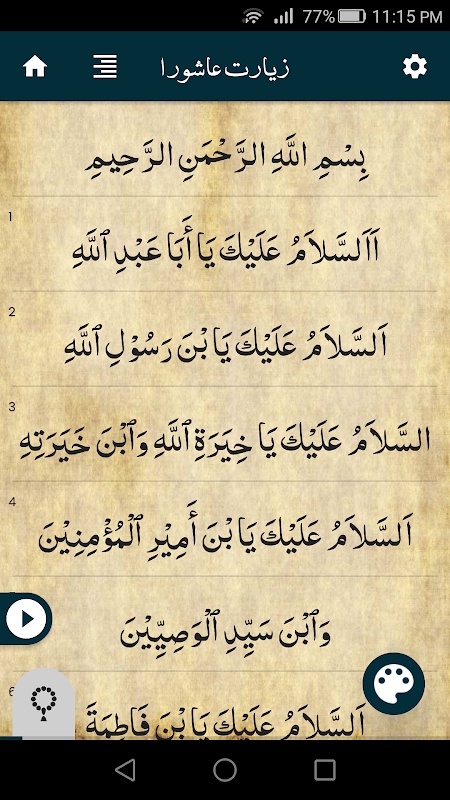 77% 11:15 PM
زیارت عاشورا
بِسْمِ اللَّهِ الرَّحْمَنِ الرَّحِيمِ
1
اَالسَّلاَمُ عَلَيْكَ يَا أَبَا عَبْدِ ٱللَّهِ
2
اَلسَّلاَمُ عَلَيْكَ يَا بْنَ رَسُوْلِ ٱللَّهِ
3
السَّلاَمُ عَلَيْكَ يَا خِيَرَةِ ٱللَّهِ وَٱبْنَ خَيَرَتِهِ
4
اَلسَّلاَمُ عَلَيْكَ يَا بْنَ أَمِيْرِ ٱلْمُؤْمِنِيْنَ
وَٱبْنَ سَيِّدِ ٱلْوَصِيِّيْنَ
6
اَلسَّلاَمُ عَلَيْكَ يَا بْنَ فَاطِمَةَ